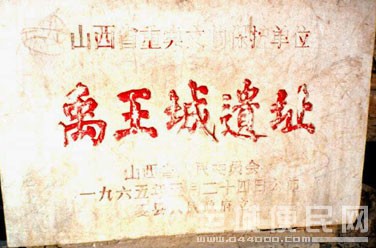 山西省重点文物保护单位
禹王城遺址
山西省人民委员会
一九六五年五月二十四日公布
夏县人民
便民网
www.044000.com